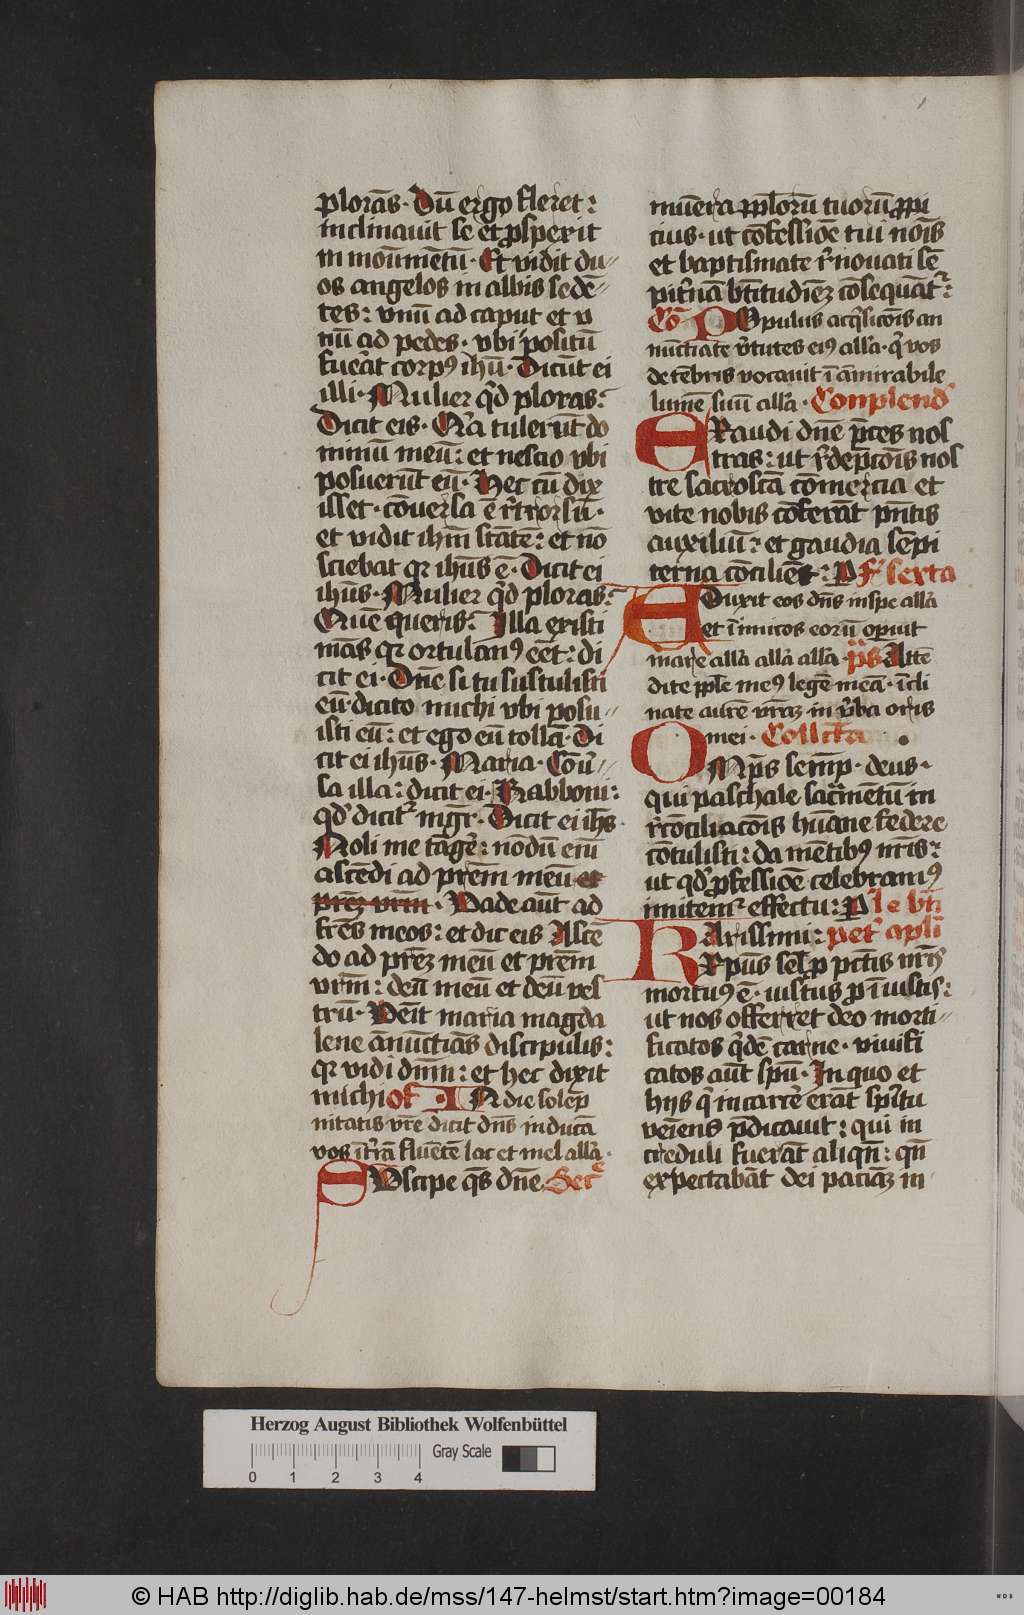 plorās. Dū ergo fleret:
inclinauit se et ꝓspexit
in monumētū. Et vidit du⸗
os angelos in albis sedē⸗
tes: vnū ad caput et v
nū ad pedes. vbi positū
fuerāt corpꝰ ihū. Dicūt ei
illi. Mulier qͥd ploras:
Dicit eis. Qꝛ tulerūt do
minū meū: et nescio vbi
posuerūt eū. Hec cū dix
isset. cōuersa ē rͤtrorsū.
et vidit ihm̄ stātē: et nō
sciebat qꝛ ihūs ē. Dicit ei
ihūs. Mulier qͥd ploras:
Quē queris: Illa existi
mās qꝛ ortulanꝰ eēt: di
cit ei. Dn̄e si tu sustulisti
eū. dicito michi vbi posu⸗
isti eū: et ego eū tollā. Di
cit ei ihūs. Maria. Cōu̾⸗
sa illa: dicit ei. Rabboni:
qd̾ dicit᷑ mgr̄. Dicit ei ihs̄.
Noli me tāge̾: nōdū enī
ascēdi ad prēm meū et
prēꝫ vrm̄. Vade aūt ad
frēs meos: et dic eis Ascē
do ad prēꝫ meū et prēm
vrm̄: deū meū et deū ves
trū. Venīt maria magda
lene ānūctiās discipulis:
qꝛ vidi dn̄m: et hec dixit
michi of. IN die solep̄
nitatis vrē dicit dn̄s inducā
vos ī t̾rā fluētē lac et mel all̾a.
SUscipe qs̄ dn̄e Secͬ
mun̄era pp̄lorū tuorū ꝓpi
cius. ut cōfessiōe tui nōis
et baptismate rͤnouati sē
pit̾nā btītudiēꝫ cōsequāt᷑:
Cō POpulus acq̄sicōis an
nūctiate v̾tutes eiꝰ all̾a. qͥ vos
de tēbris vocauit ī āmirabile
lumē suū all̾a. Conplend̾
EXaudi dn̄e p̄ces nos
tras: ut rͤdēpcōis nos
tre sacroscā cōmercia et
vite nobis cōferāt pn̄tis
auxiliū: et gaudia sēpi
terna cōciliēt: P F̾ sexta
EDuxit eos dn̄s in spe all̾a
et īimicos eorū opuit
mare all̾a all̾a all̾a. p̄s Attē
dite pple meꝰ legē meā. īcli
nate aurē vrāꝫ in v̾ba oris
mei. Collcta
OMps̄ semp̄. deus.
qui paschale sacr̄mētū in
rͤcōciliacōis hūane federe
cōtulisti: da mētibꝰ nr̄is:
ut qd̾ ꝓfessiōe celebramꝰ
imitem᷑ effectu: P Le btī
KArissimi: pet̾ apli
Xpūs sel̾ ꝓ pctīs nr̄is
mortuꝰ ē. iustus ꝓ īiustis:
ut nos offerret deo morti⸗
ficatos qͥdē carne. viuifi
catos aūt spū. In quo et
hijs qͥ in carcē erāt sp̄itu
veiens p̄dicauit: qui in
creduli fuerāt aliqn̄: qn̄
expectabāt dei pacīaꝫ in
Herzog August Bibliothek Wolfenbüttel
Gray Scale
0 1 2 3 4
© HAB http://diglib.hab.de/mss/147-helmst/start.htm?image=00184